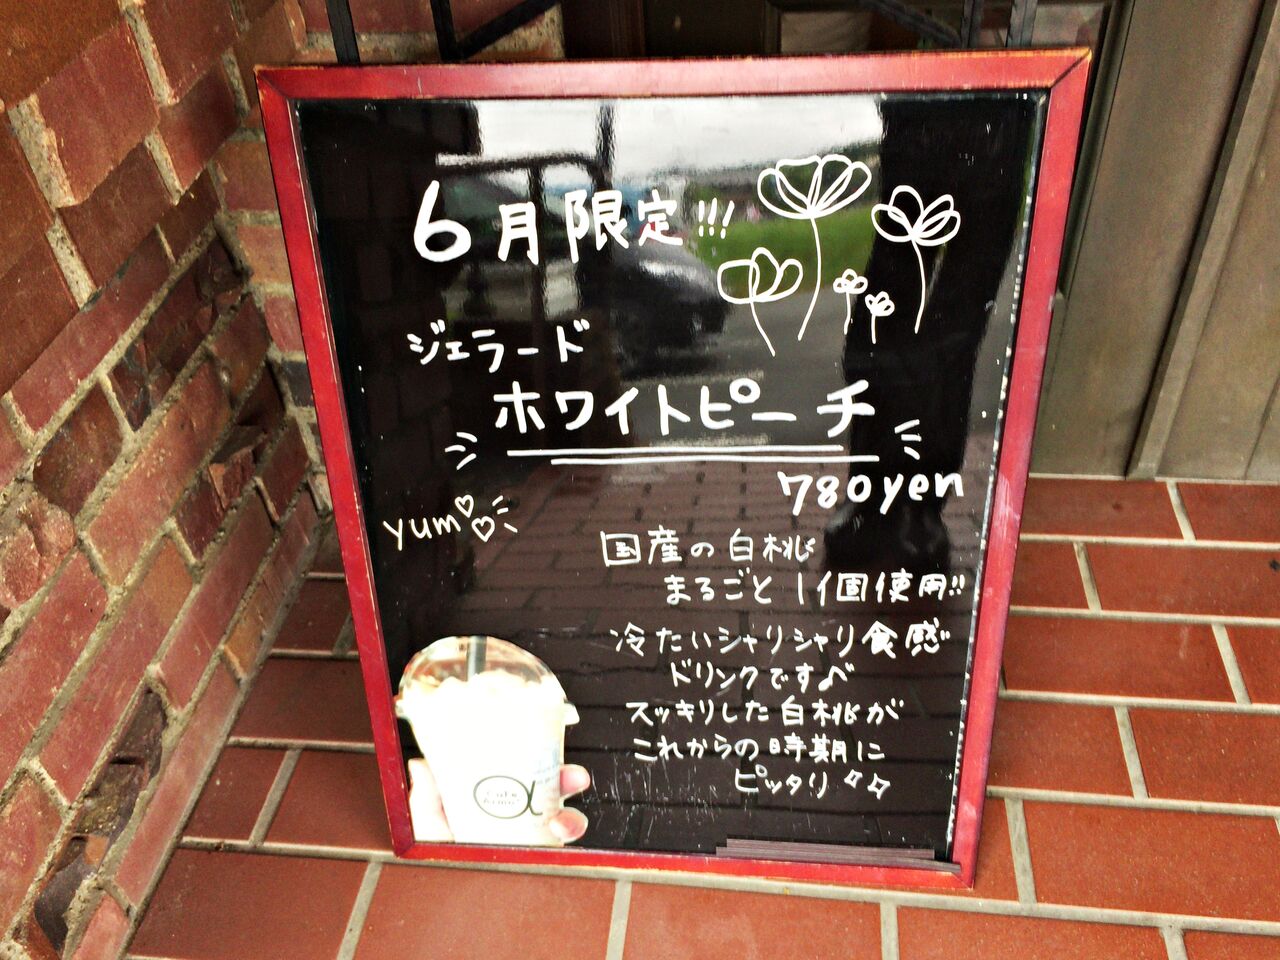 6月限定!!!
ジェラード
ホワイトピーチ
780yen
yum
国産の白桃
まるごと1個使用!!
冷たいシャリシャリ食感
ドリンクです♪
スッキリした白桃が
これからの時期に
ピッタリ
Cafe
α